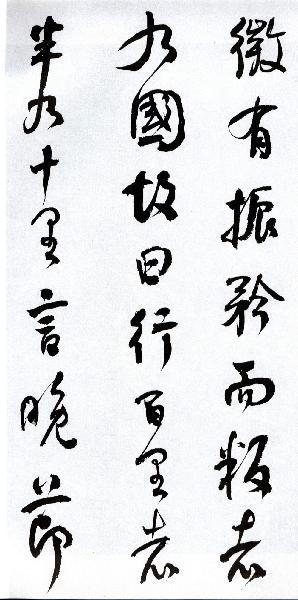 微有振矜而叛者
九國故曰行百里者
半九十里言晚節